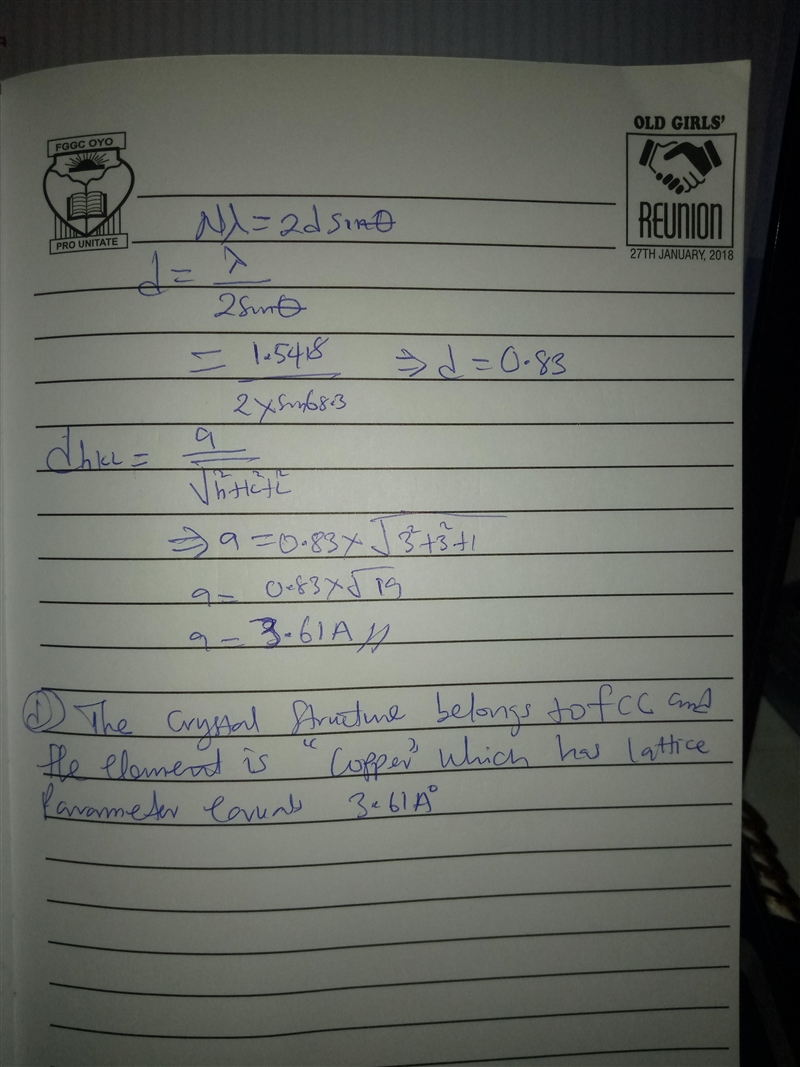 FGGC OYO
PRO UNITATE
OLD GIRLS'
REUNION
27TH JANUARY, 2018
Nλ = 2d sinθ
d = λ / 2sinθ
= 1.5418 / 2 × sin68.3 ⇒ d = 0.83
dhkl = a / √h²+k²+l²
⇒ a = 0.83 × √3²+3²+1
a = 0.83 × √19
a = 3.61A //
(d) The Crystal Structure belongs to fCC and
the element is "Copper" which has lattice
Parameter equals 3.61A°